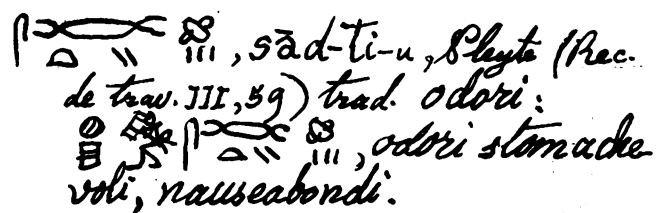 , sād-ti-u, Pleyte (Rec.
de trav. III, 59) trad. odori:
, odori stomache
voli, nauseabondi.